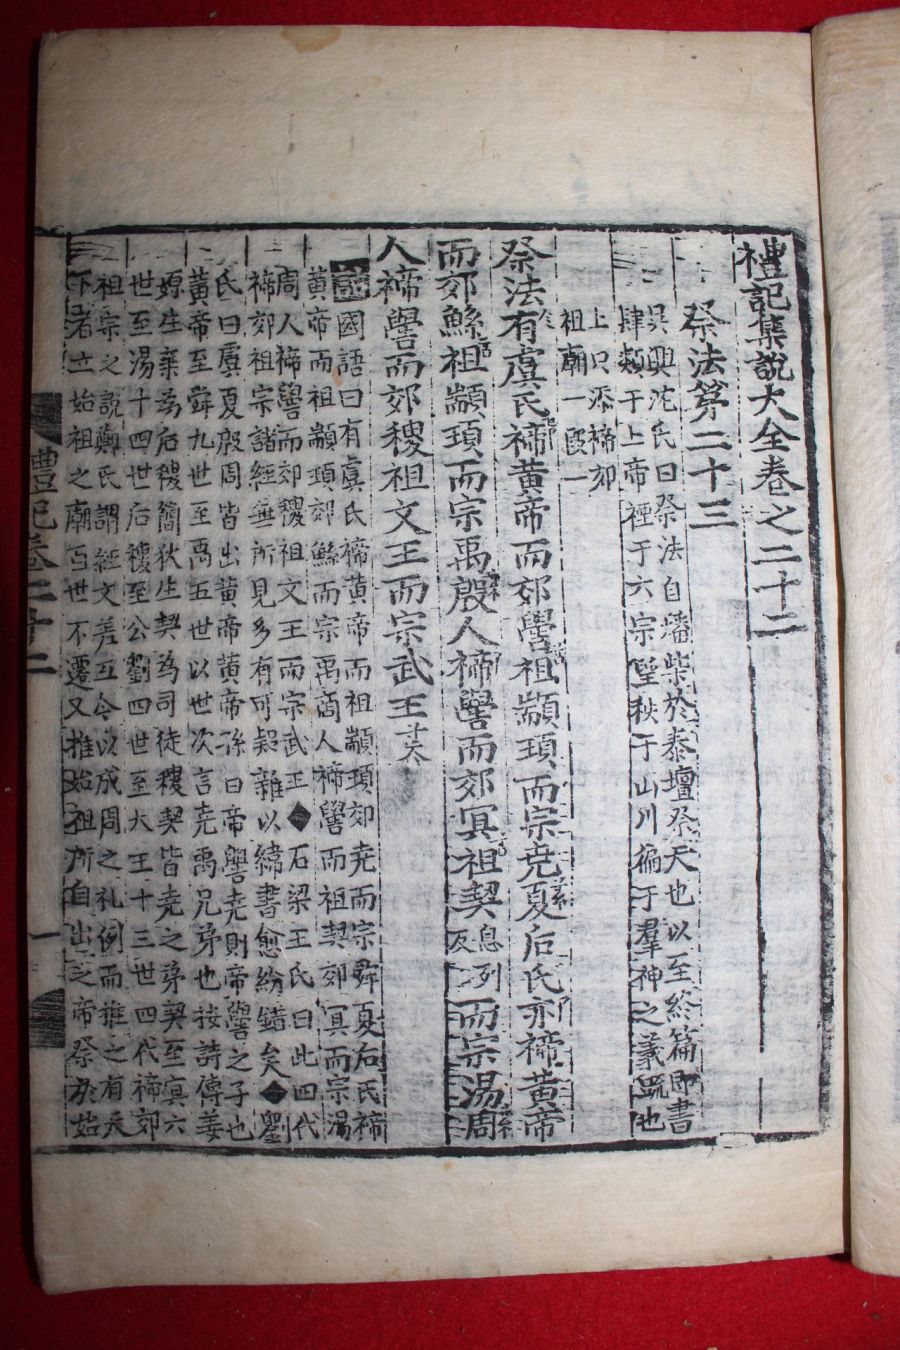 禮記集說大全卷之二十二
祭法第二十三
吳興沈氏曰祭法自燔柴於泰壇祭天也以至終篇即書
肆類于上帝禋于六宗望秩于山川徧于羣神之義疏也
上只添禘郊
祖廟一段
祭法有虞氏禘黃帝而郊嚳祖顓頊而宗堯夏后氏亦禘黃帝
而郊鯀祖顓頊而宗禹殷人禘嚳而郊冥祖契息列反而宗湯周
人禘嚳而郊稷祖文王而宗武王
國語曰有虞氏禘黃帝而祖顓頊郊堯而宗舜夏后氏禘
黃帝而祖顓頊郊鯀而宗禹商人禘嚳而祖契郊冥而宗湯
周人禘嚳而郊稷祖文王而宗武王◆石梁王氏曰此四代
禘郊祖宗諸經無所見多有可疑雜以緯書愈紛錯矣◆劉
氏曰虞夏殷周皆出黃帝黃帝孫曰帝嚳堯則帝嚳之子也
黃帝至舜九世至禹五世以世次言堯禹兄弟也按詩傳姜
嫄生棄為后稷簡狄生契為司徒稷契皆堯之弟契至冥六
世至湯十四世后稷至公劉四世至大王十三世四代禘郊
祖宗之說鄭氏謂經文差互今以成周之礼例而推之有天
下者立始祖之廟百世不遷又推始祖所自出之帝祭於始
禮記卷二十二
一